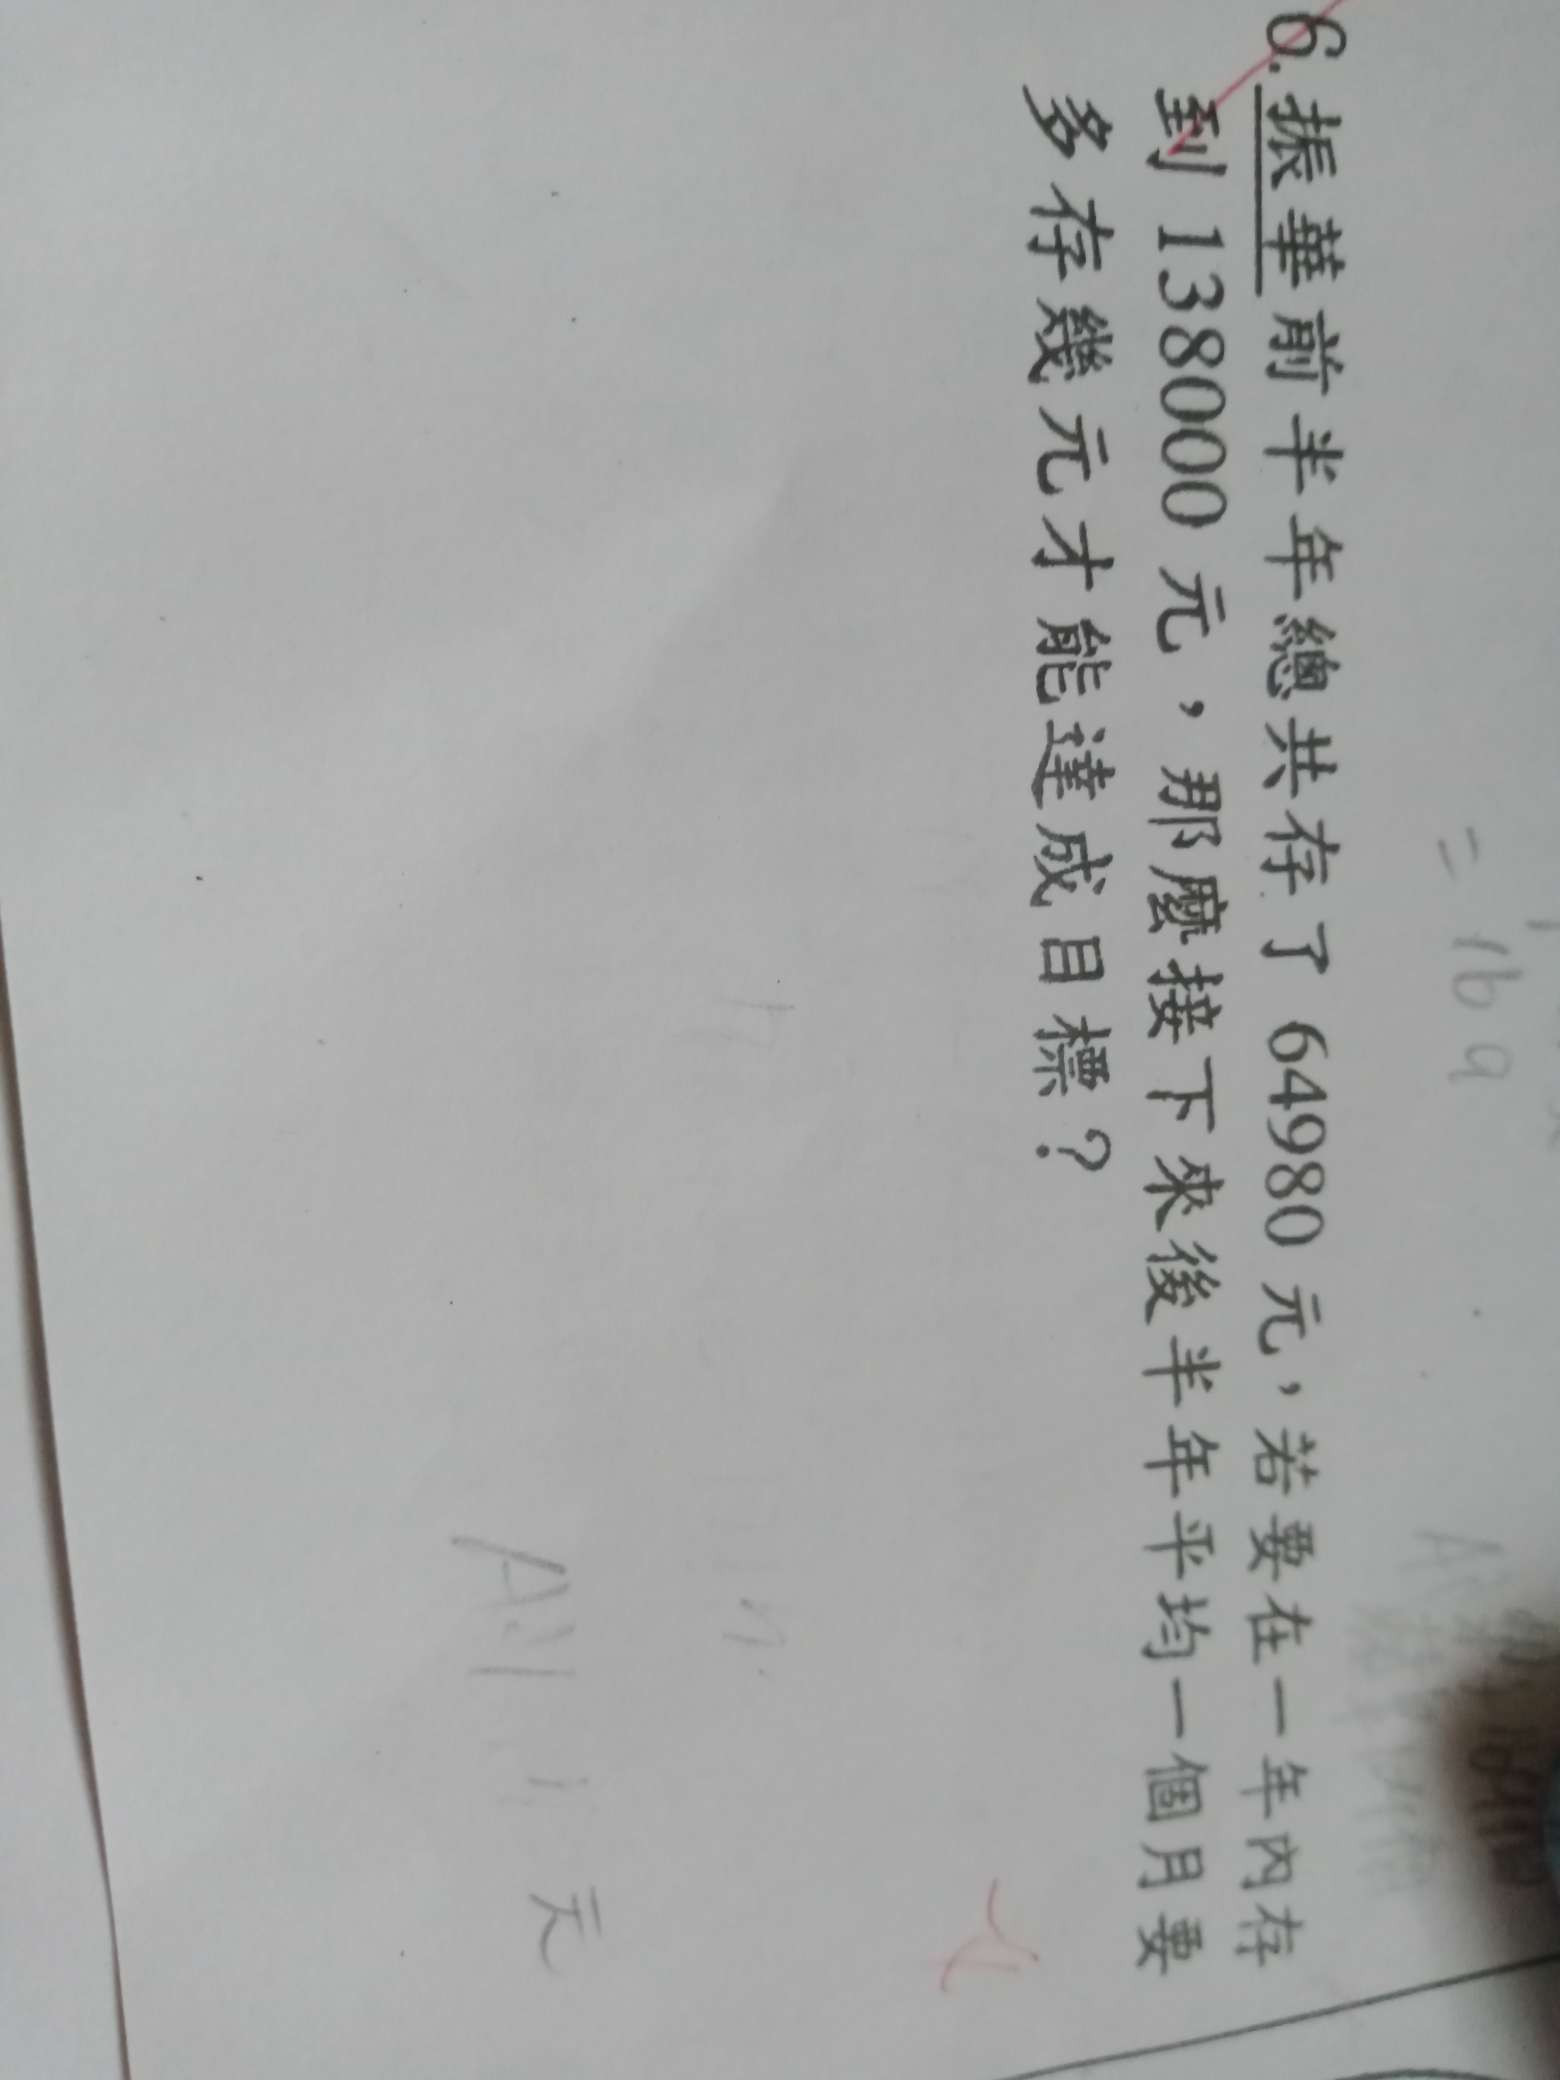 = 169
6.振華前半年總共存了 64980 元，若要在一年內存
到 138000 元，那麼接下來後半年平均一個月要
多存幾元才能達成目標？
元